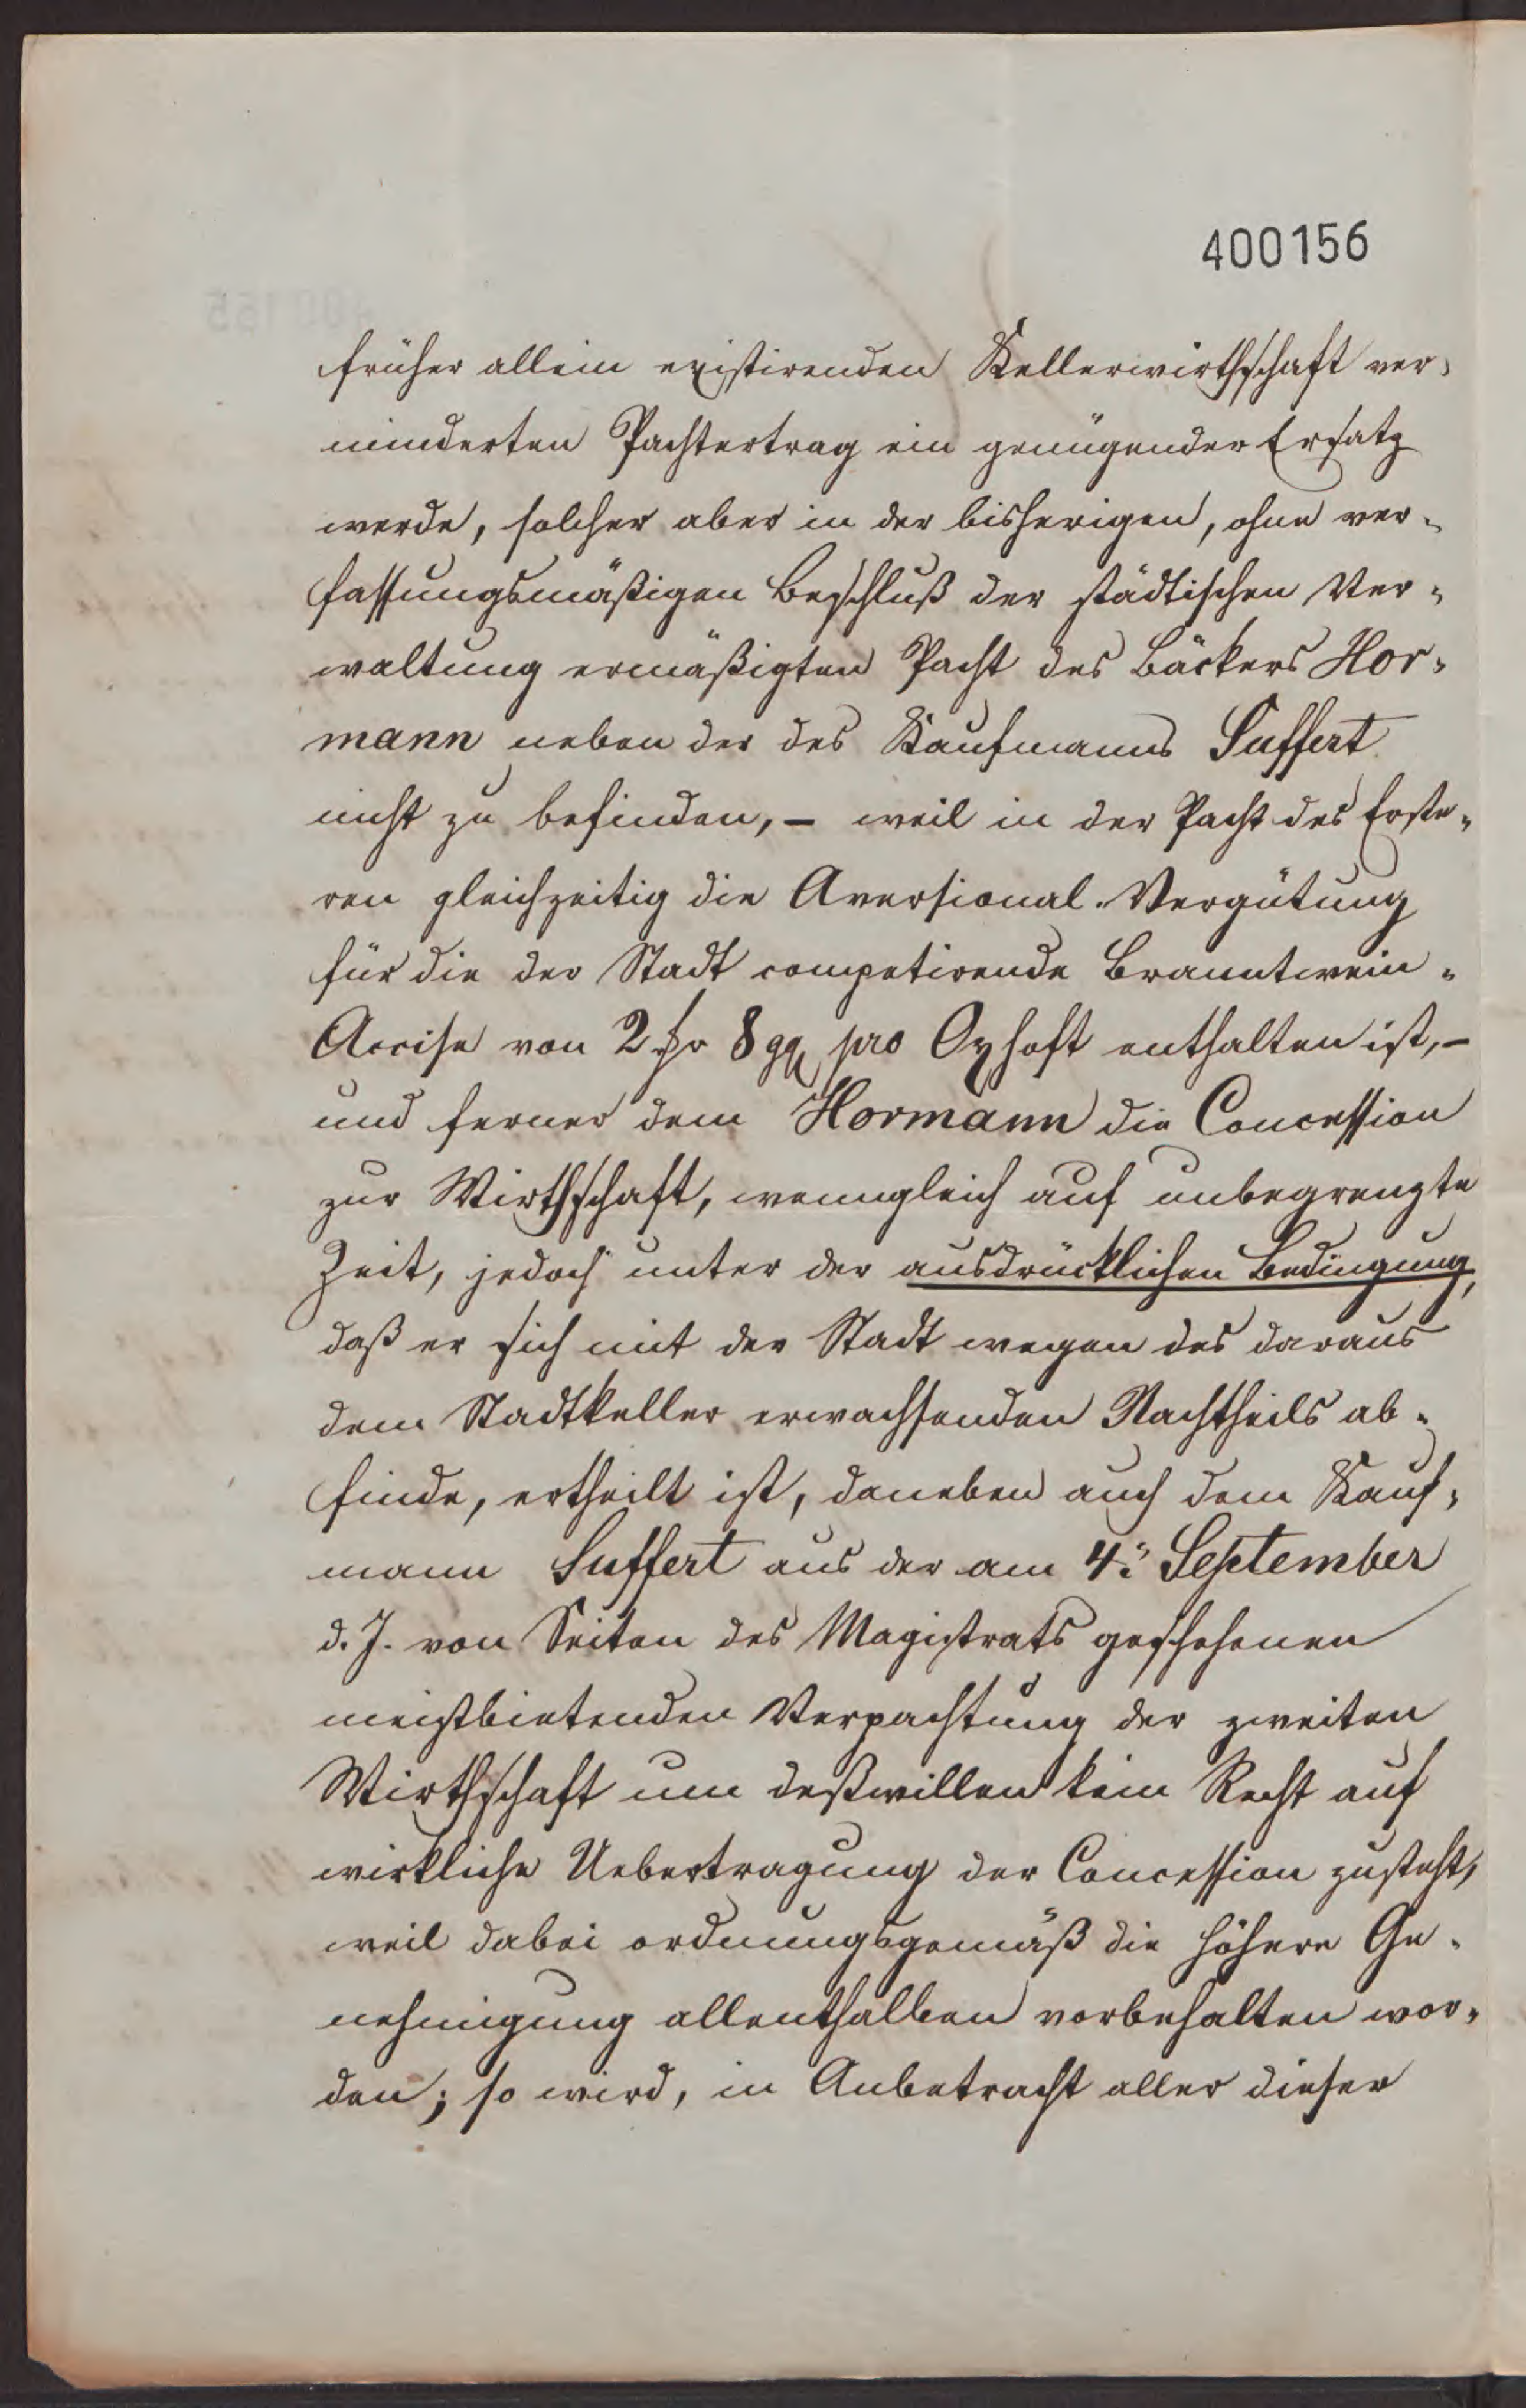 400156
früher allein existirenden Kellerwirthschaft ver-
minderten Pachtertrag ein genügender Ersatz
werde, solcher aber in der bisherigen, ohne ver-
fassungsmäßigen Beschluß der städtischen Ver-
waltung ermäßigten Pacht des Bäckers Hor-
mann neben der des Kaufmanns Suffert
nicht zu befinden, – weil in der Pacht des Erste-
ren gleichzeitig die Aversional-Vergütung
für die der Stadt competirende Branntwein-
Accise von 2 ₰ 8 ggr pro Oxhoft enthalten ist, –
und ferner dem Hormann die Concession
zur Wirthschaft, wenngleich auf unbegrenzte
Zeit, jedoch unter der ausdrücklichen Bedingung,
daß er sich mit der Stadt wegen des daraus
dem Stadtkeller erwachsenden Nachtheils ab-
finde, ertheilt ist, daneben auch dem Kauf-
mann Suffert aus der am 4. September
d. J. von Seiten des Magistrats geschehenen
meistbietenden Verpachtung der zweiten
Wirthschaft um deßwillen kein Recht auf
wirkliche Uebertragung der Concession zusteht,
weil dabei ordnungsgemäß die höhere Ge-
nehmigung allenthalben vorbehalten wor-
den; so wird, in Anbetracht aller dieser